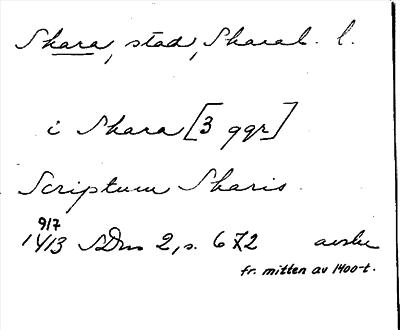 Skara, stad, Skarab. l.
i Skara [3 ggr]
Scriptum Skaris.
9/7
1413 SDns 2, s. 672 avskr
fr. mitten av 1400-t.